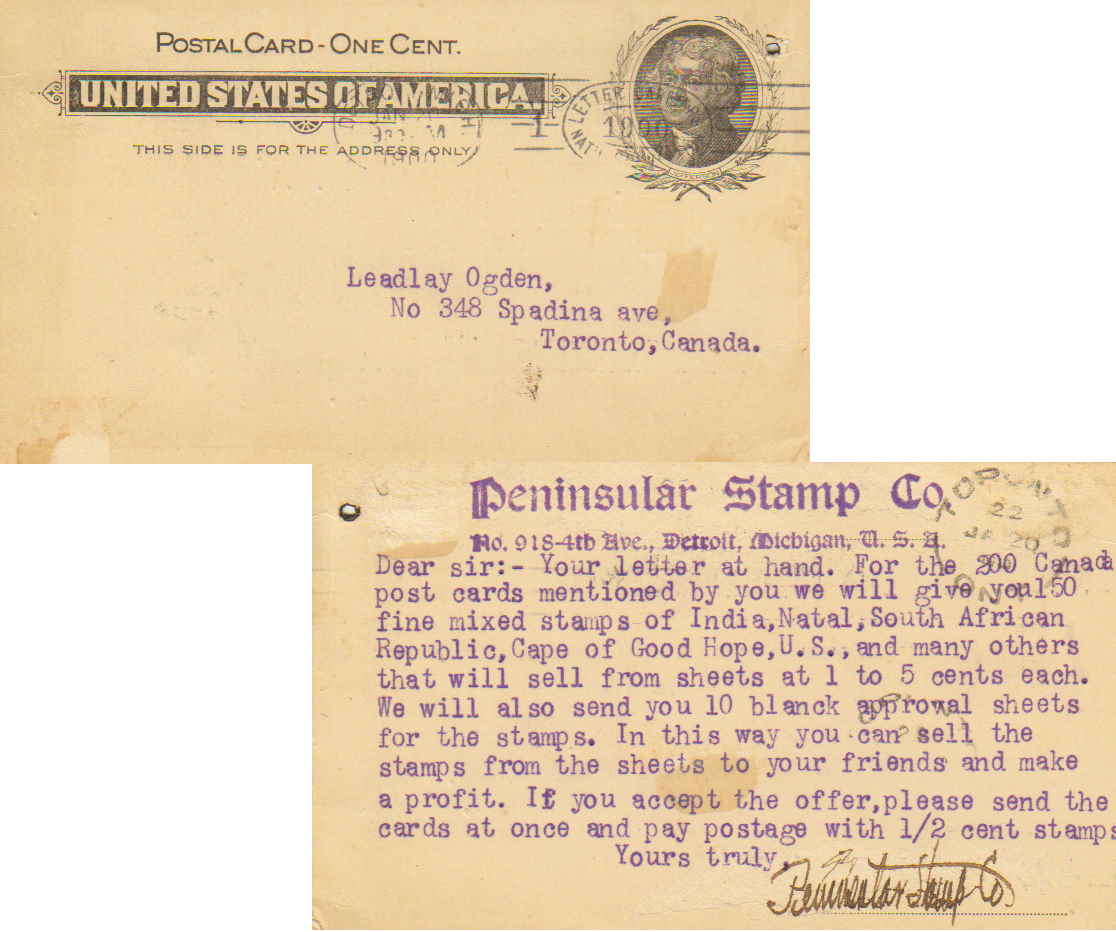 POSTAL CARD - ONE CENT.
UNITED STATES OF AMERICA.
THIS SIDE IS FOR THE ADDRESS ONLY
JAN
1900
1
LETTER
1900
JEFFERSON
Leadlay Ogden,
No 348 Spadina ave,
Toronto, Canada.
Peninsular Stamp Co.
No. 918-4th Ave., Detroit, Michigan, U. S. A.
TORONTO
22
JA 20
Dear sir:- Your letter at hand. For the 200 Canada
post cards mentioned by you we will give you 150
fine mixed stamps of India,Natal,South African
Republic,Cape of Good Hope,U.S.,and many others
that will sell from sheets at 1 to 5 cents each.
We will also send you 10 blanck approval sheets
for the stamps. In this way you can sell the
stamps from the sheets to your friends and make
a profit. If you accept the offer,please send the
cards at once and pay postage with 1/2 cent stamps
Yours truly,
Peninsular Stamp Co